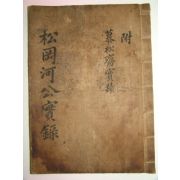 附
慕松齋實錄
松岡河公實錄